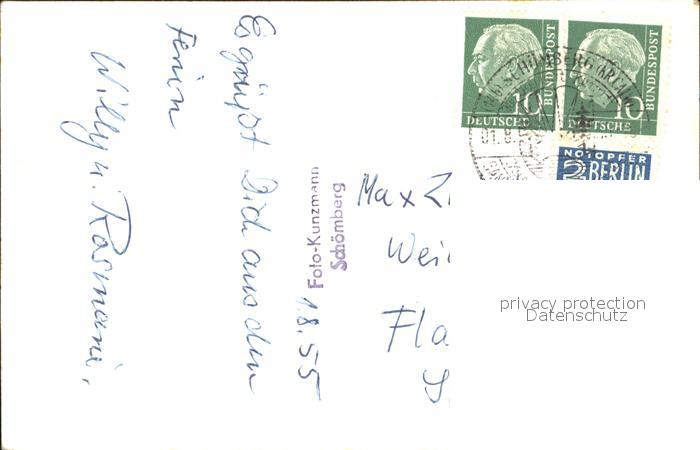 Es grüßt Dich aus den
Ferien
Willy u.
1.8.55
Foto-Kunzmann
Schömberg
Max
Wei
Fla
S
10
DEUTSCHE
BUNDESPOST
10
DEUTSCHE
BUNDESPOST
SCHÖMBERG
01.8
NOTOPFER
2 BERLIN
privacy protection
Datenschutz